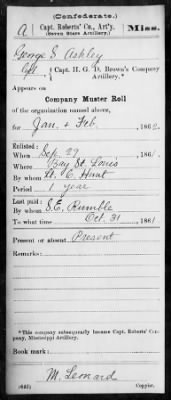 (Confederate.)
A | Capt. Roberts' Co., Art'y. | Miss.
(Seven Stars Artillery.)
George S. Ashley
Capt. H. G. D. Brown's Company
Artillery.*
Appears on
Company Muster Roll
of the organization named above,
for Jan. & Feb., 1862.
Enlisted:
When Sep. 29, 186
Where Bay St. Louis
By whom Lt. C. Hunt
Period 1 year
Last paid:
By whom S. E. Rumble
To what time Oct. 31, 1861.
Present or absent Present
Remarks:
*This company subsequently became Capt. Roberts' Company, Mississippi Artillery.
Book mark:
M. Leonard
(642) Copyist.